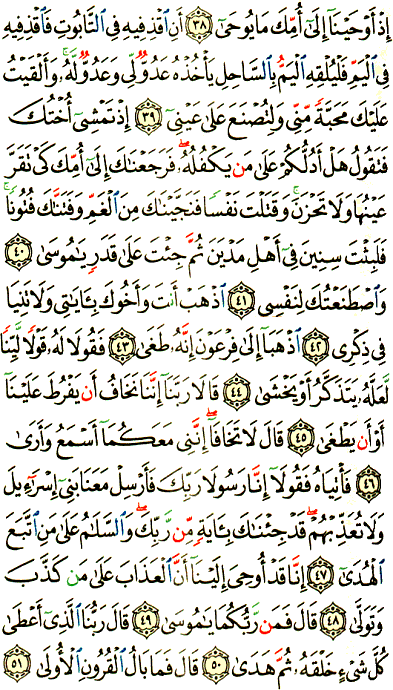 إِذْ أَوْحَيْنَآ إِلَىٰٓ أُمِّكَ مَا يُوحَىٰٓ ٣٨ أَنِ ٱقْذِفِيهِ فِى ٱلتَّابُوتِ فَٱقْذِفِيهِ
فِى ٱلْيَمِّ فَلْيُلْقِهِ ٱلْيَمُّ بِٱلسَّاحِلِ يَأْخُذْهُ عَدُوٌّ لِّى وَعَدُوٌّ لَّهُۥ ۚ وَأَلْقَيْتُ
عَلَيْكَ مَحَبَّةً مِّنِّى وَلِتُصْنَعَ عَلَىٰ عَيْنِىٓ ٣٩ إِذْ تَمْشِىٓ أُخْتُكَ
فَتَقُولُ هَلْ أَدُلُّكُمْ عَلَىٰ مَن يَكْفُلُهُۥ ۖ فَرَجَعْنَٰكَ إِلَىٰٓ أُمِّكَ كَىْ تَقَرَّ
عَيْنُهَا وَلَا تَحْزَنَ ۚ وَقَتَلْتَ نَفْسًا فَنَجَّيْنَٰكَ مِنَ ٱلْغَمِّ وَفَتَنَّٰكَ فُتُونًا ۚ
فَلَبِثْتَ سِنِينَ فِىٓ أَهْلِ مَدْيَنَ ثُمَّ جِئْتَ عَلَىٰ قَدَرٍ يَٰمُوسَىٰ ٤٠
وَٱصْطَنَعْتُكَ لِنَفْسِى ٤١ ٱذْهَبْ أَنتَ وَأَخُوكَ بِـَٔايَٰتِى وَلَا تَنِيَا
فِى ذِكْرِى ٤٢ ٱذْهَبَآ إِلَىٰ فِرْعَوْنَ إِنَّهُۥ طَغَىٰ ٤٣ فَقُولَا لَهُۥ قَوْلًا لَّيِّنًا
لَّعَلَّهُۥ يَتَذَكَّرُ أَوْ يَخْشَىٰ ٤٤ قَالَا رَبَّنَآ إِنَّنَا نَخَافُ أَن يَفْرُطَ عَلَيْنَآ
أَوْ أَن يَطْغَىٰ ٤٥ قَالَ لَا تَخَافَآ ۖ إِنَّنِى مَعَكُمَآ أَسْمَعُ وَأَرَىٰ
٤٦ فَأْتِيَاهُ فَقُولَآ إِنَّا رَسُولَا رَبِّكَ فَأَرْسِلْ مَعَنَا بَنِىٓ إِسْرَٰٓءِيلَ
وَلَا تُعَذِّبْهُمْ ۖ قَدْ جِئْنَٰكَ بِـَٔايَةٍ مِّن رَّبِّكَ ۖ وَٱلسَّلَٰمُ عَلَىٰ مَنِ ٱتَّبَعَ
ٱلْهُدَىٰٓ ٤٧ إِنَّا قَدْ أُوحِىَ إِلَيْنَآ أَنَّ ٱلْعَذَابَ عَلَىٰ مَن كَذَّبَ
وَتَوَلَّىٰ ٤٨ قَالَ فَمَن رَّبُّكُمَا يَٰمُوسَىٰ ٤٩ قَالَ رَبُّنَا ٱلَّذِىٓ أَعْطَىٰ
كُلَّ شَىْءٍ خَلْقَهُۥ ثُمَّ هَدَىٰ ٥٠ قَالَ فَمَا بَالُ ٱلْقُرُونِ ٱلْأُولَىٰ ٥١